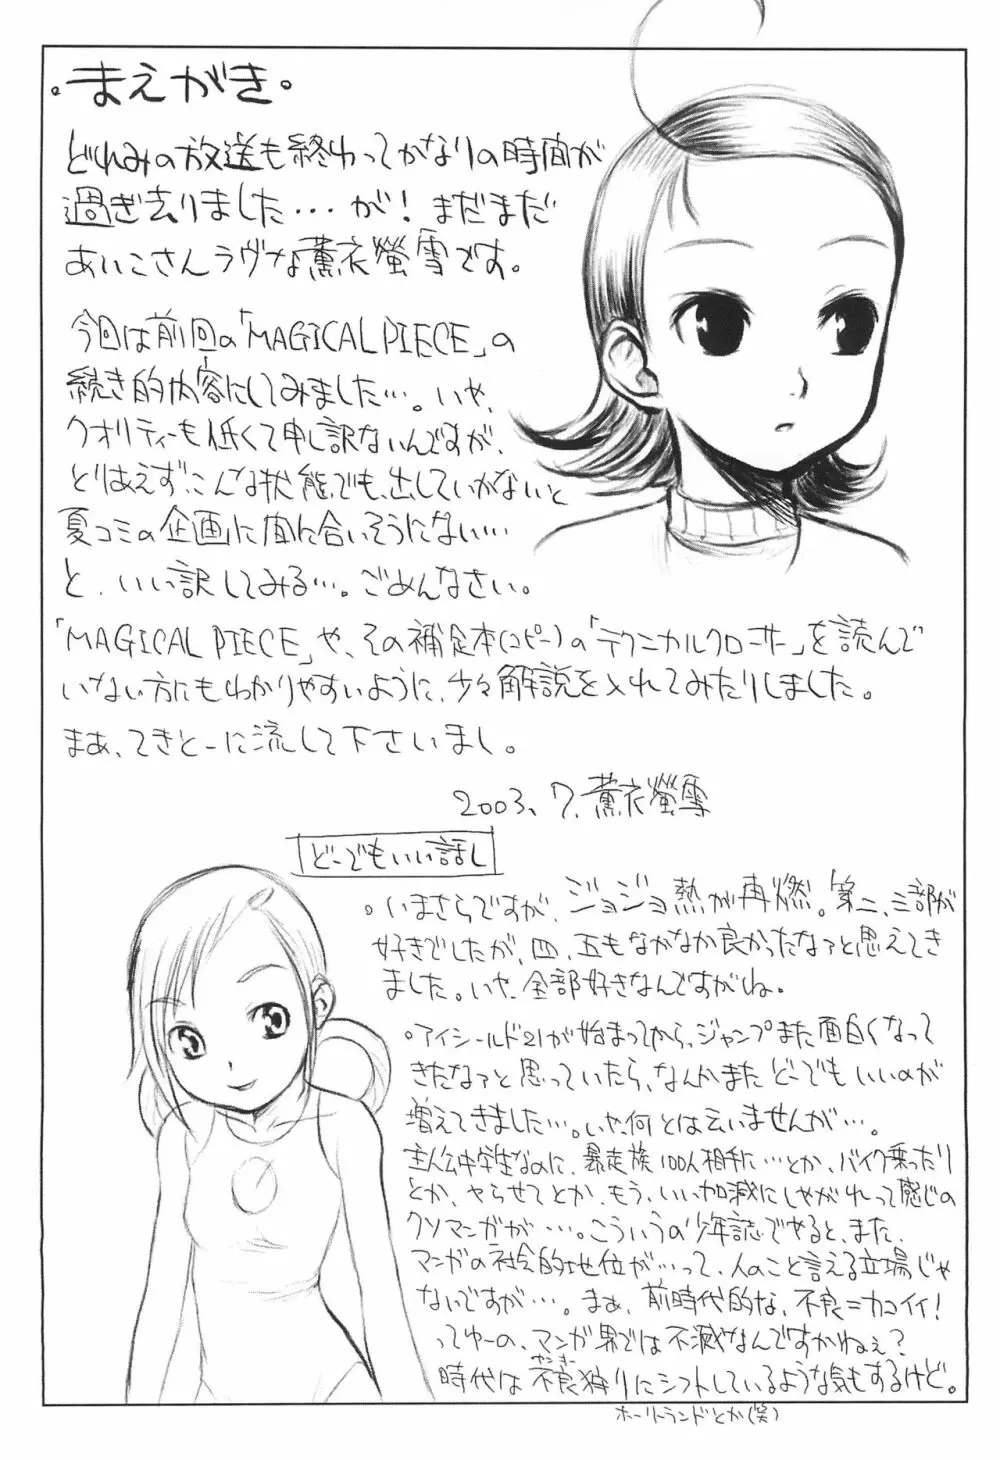 。まえがき。
どれみの放送も終わってかなりの時間が
過ぎ去りました…が！まだまだ
あいこさんラヴな薫衣螢雪です。
今回は前回の「MAGICAL PIECE」の
続き的内容にしてみました…。いや、
クオリティーも低くて申し訳ないんですが、
とりあえず、こんな状態でも、出していかないと
夏コミの企画に間に合いそうにない…
と、いい訳してみる…。ごめんなさい。
「MAGICAL PIECE」や、その補足本(コピー)の「テクニカルクローサー」を読んで
いない方にもわかりやすいように、少々解説を入れてみたりしました。
まあ、てきとーに流して下さいまし。
2003、7、薫衣螢雪
どーでもいい話し
。いまさらですが、ジョジョ熱が再燃。第二、三部が
好きでしたが、四、五もなかなか良かったなァと思えてき
ました。いや、全部好きなんですがね。
。アイシールド21が始まってから、ジャンプまた面白くなって
きたなァと思っていたら、なんかまたどーでもいいのが
増えてきました…。いや、何とは云いませんが…。
主人公中学生なのに、暴走族100人相手に…とか、バイク乗ったり
とか、ヤらせてとか、もう、いい加減にしやがれって感じの
クソマンガが…。こういうの少年誌でやると、また、
マンガの社会的地位が…って、人のこと言える立場じゃ
ないですが…。まぁ、前時代的な、不良＝カコイイ！
ってゆーの、マンガ界では不滅なんですかねぇ？
ヤンキー
時代は不良狩りにシフトしているような気もするけど。
ホーリーランドとか(笑)